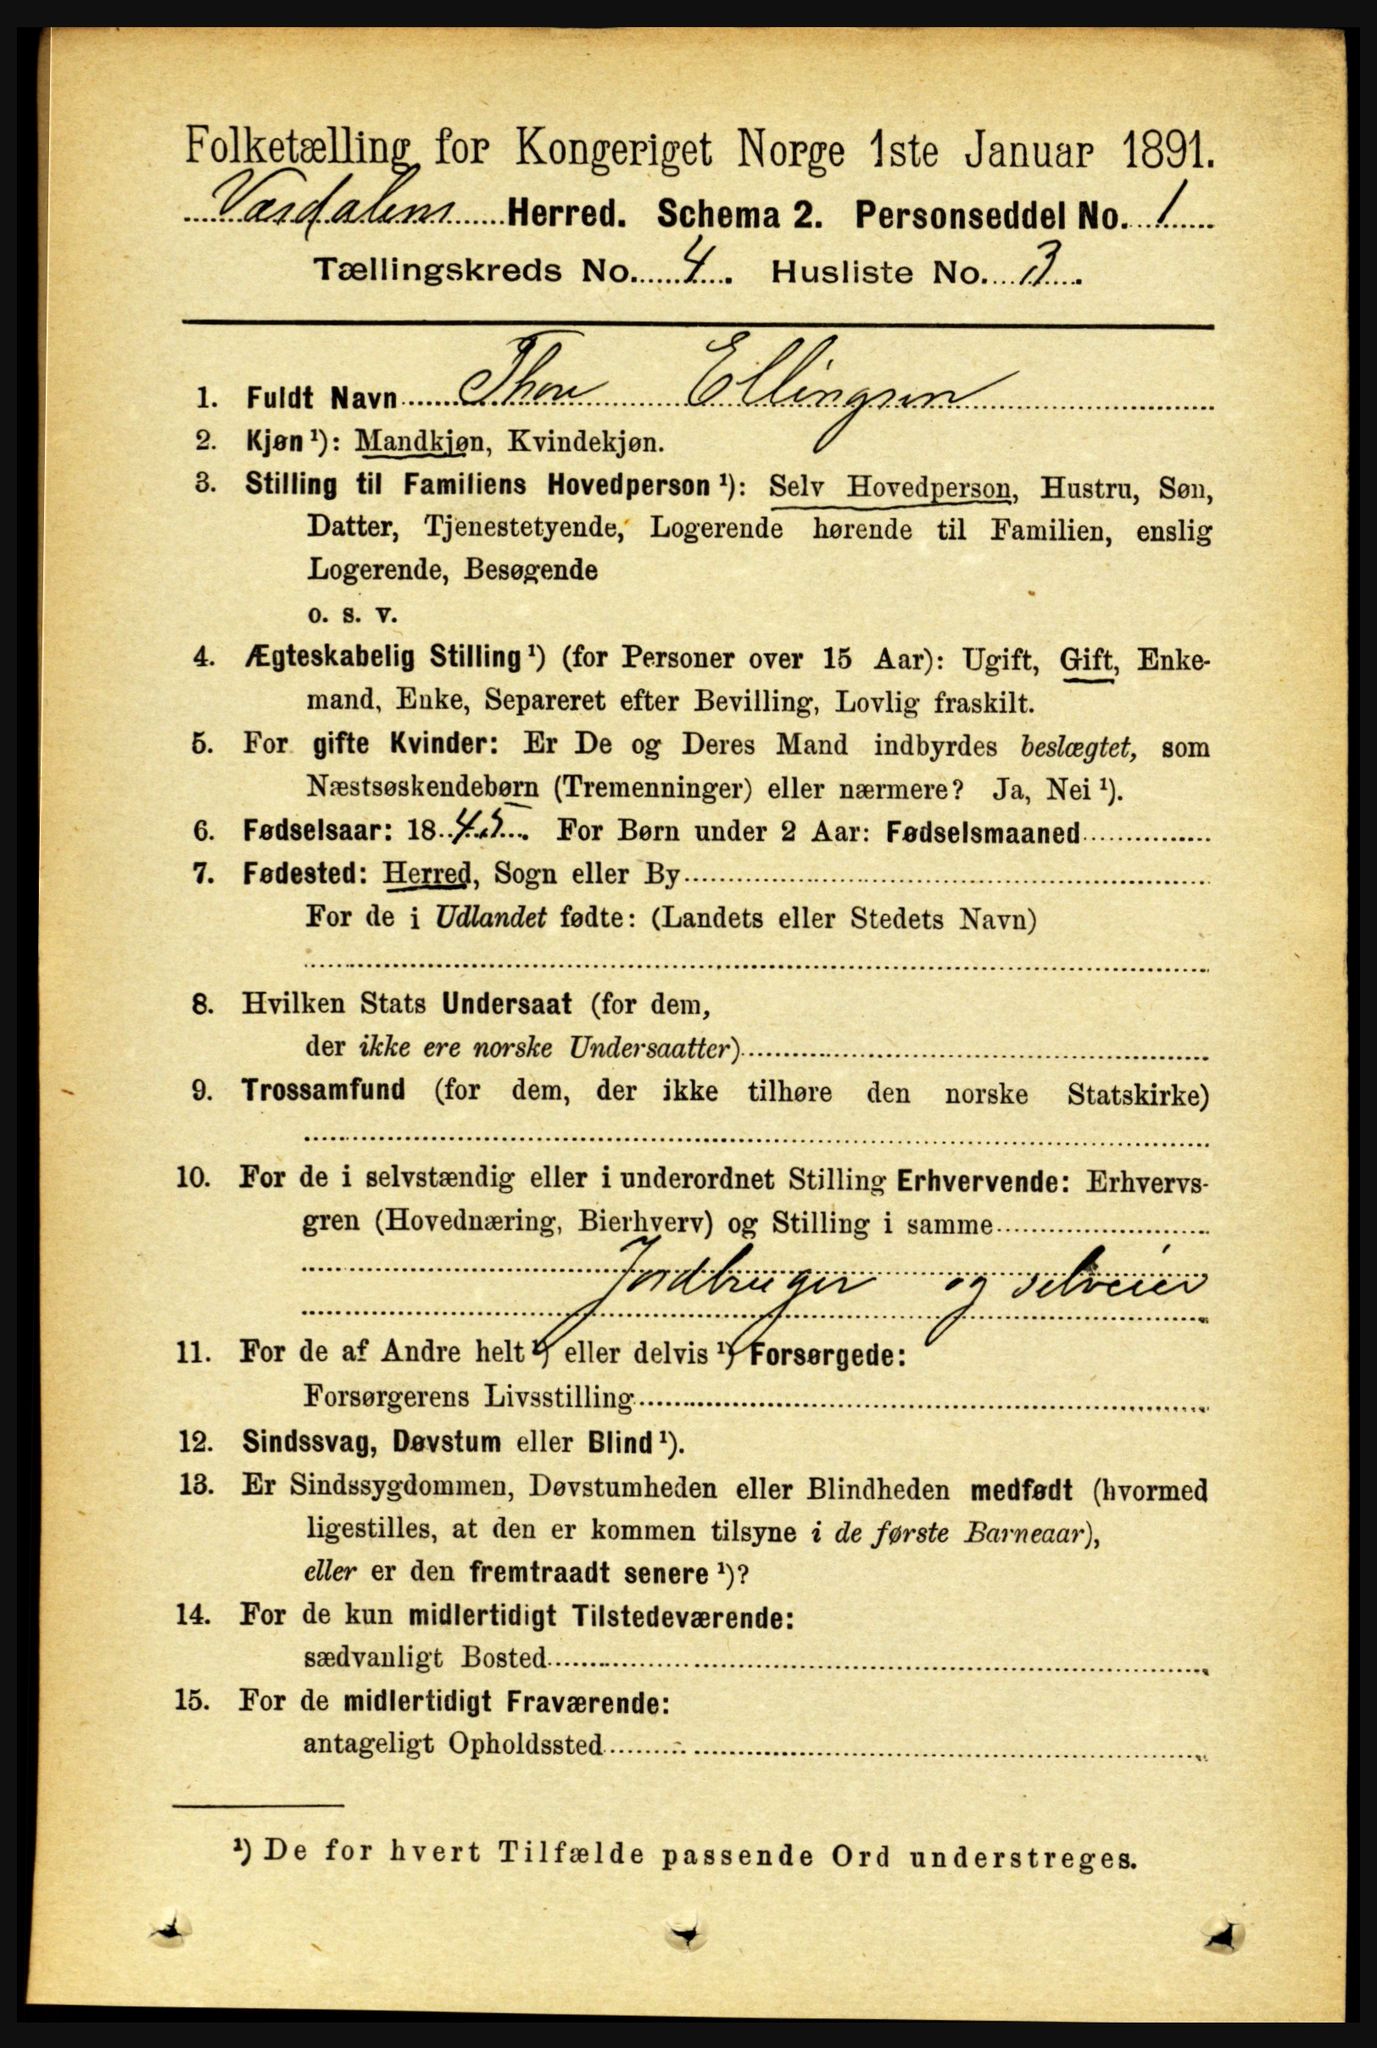 Folketælling for Kongeriget Norge 1ste Januar 1891.
Værdalens Herred. Schema 2. Personseddel No. 1
Tællingskreds No. 4. Husliste No. 3.
1. Fuldt Navn Thore Ellingsen
2. Kjøn ¹): Mandkjøn, Kvindekjøn.
3. Stilling til Familiens Hovedperson ¹): Selv Hovedperson, Hustru, Søn,
Datter, Tjenestetyende, Logerende hørende til Familien, enslig
Logerende, Besøgende
o. s. v.
4. Ægteskabelig Stilling ¹) (for Personer over 15 Aar): Ugift, Gift, Enke-
mand, Enke, Separeret efter Bevilling, Lovlig fraskilt.
5. For gifte Kvinder: Er De og Deres Mand indbyrdes beslægtet, som
Næstsøskendebørn (Tremenninger) eller nærmere? Ja, Nei ¹).
6. Fødselsaar: 1845. For Børn under 2 Aar: Fødselsmaaned
7. Fødested: Herred, Sogn eller By
For de i Udlandet fødte: (Landets eller Stedets Navn)
8. Hvilken Stats Undersaat (for dem,
der ikke ere norske Undersaatter)
9. Trossamfund (for dem, der ikke tilhøre den norske Statskirke)
10. For de i selvstændig eller i underordnet Stilling Erhvervende: Erhvervs-
gren (Hovednæring, Bierhverv) og Stilling i samme
Jordbruger og selveier
11. For de af Andre helt ¹) eller delvis ¹) Forsørgede:
Forsørgerens Livsstilling
12. Sindssvag, Døvstum eller Blind ¹).
13. Er Sindssygdommen, Døvstumheden eller Blindheden medfødt (hvormed
ligestilles, at den er kommen tilsyne i de første Barneaar),
eller er den fremtraadt senere ¹)?
14. For de kun midlertidigt Tilstedeværende:
sædvanligt Bosted
15. For de midlertidigt Fraværende:
antageligt Opholdssted
¹) De for hvert Tilfælde passende Ord understreges.